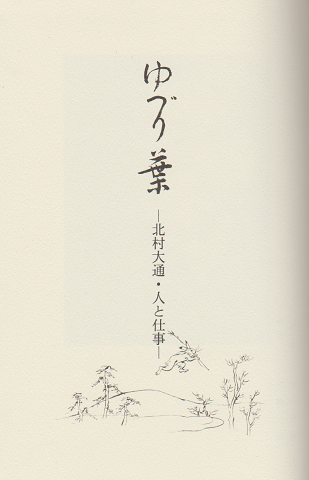 ゆづり葉
―北村大通・人と仕事―